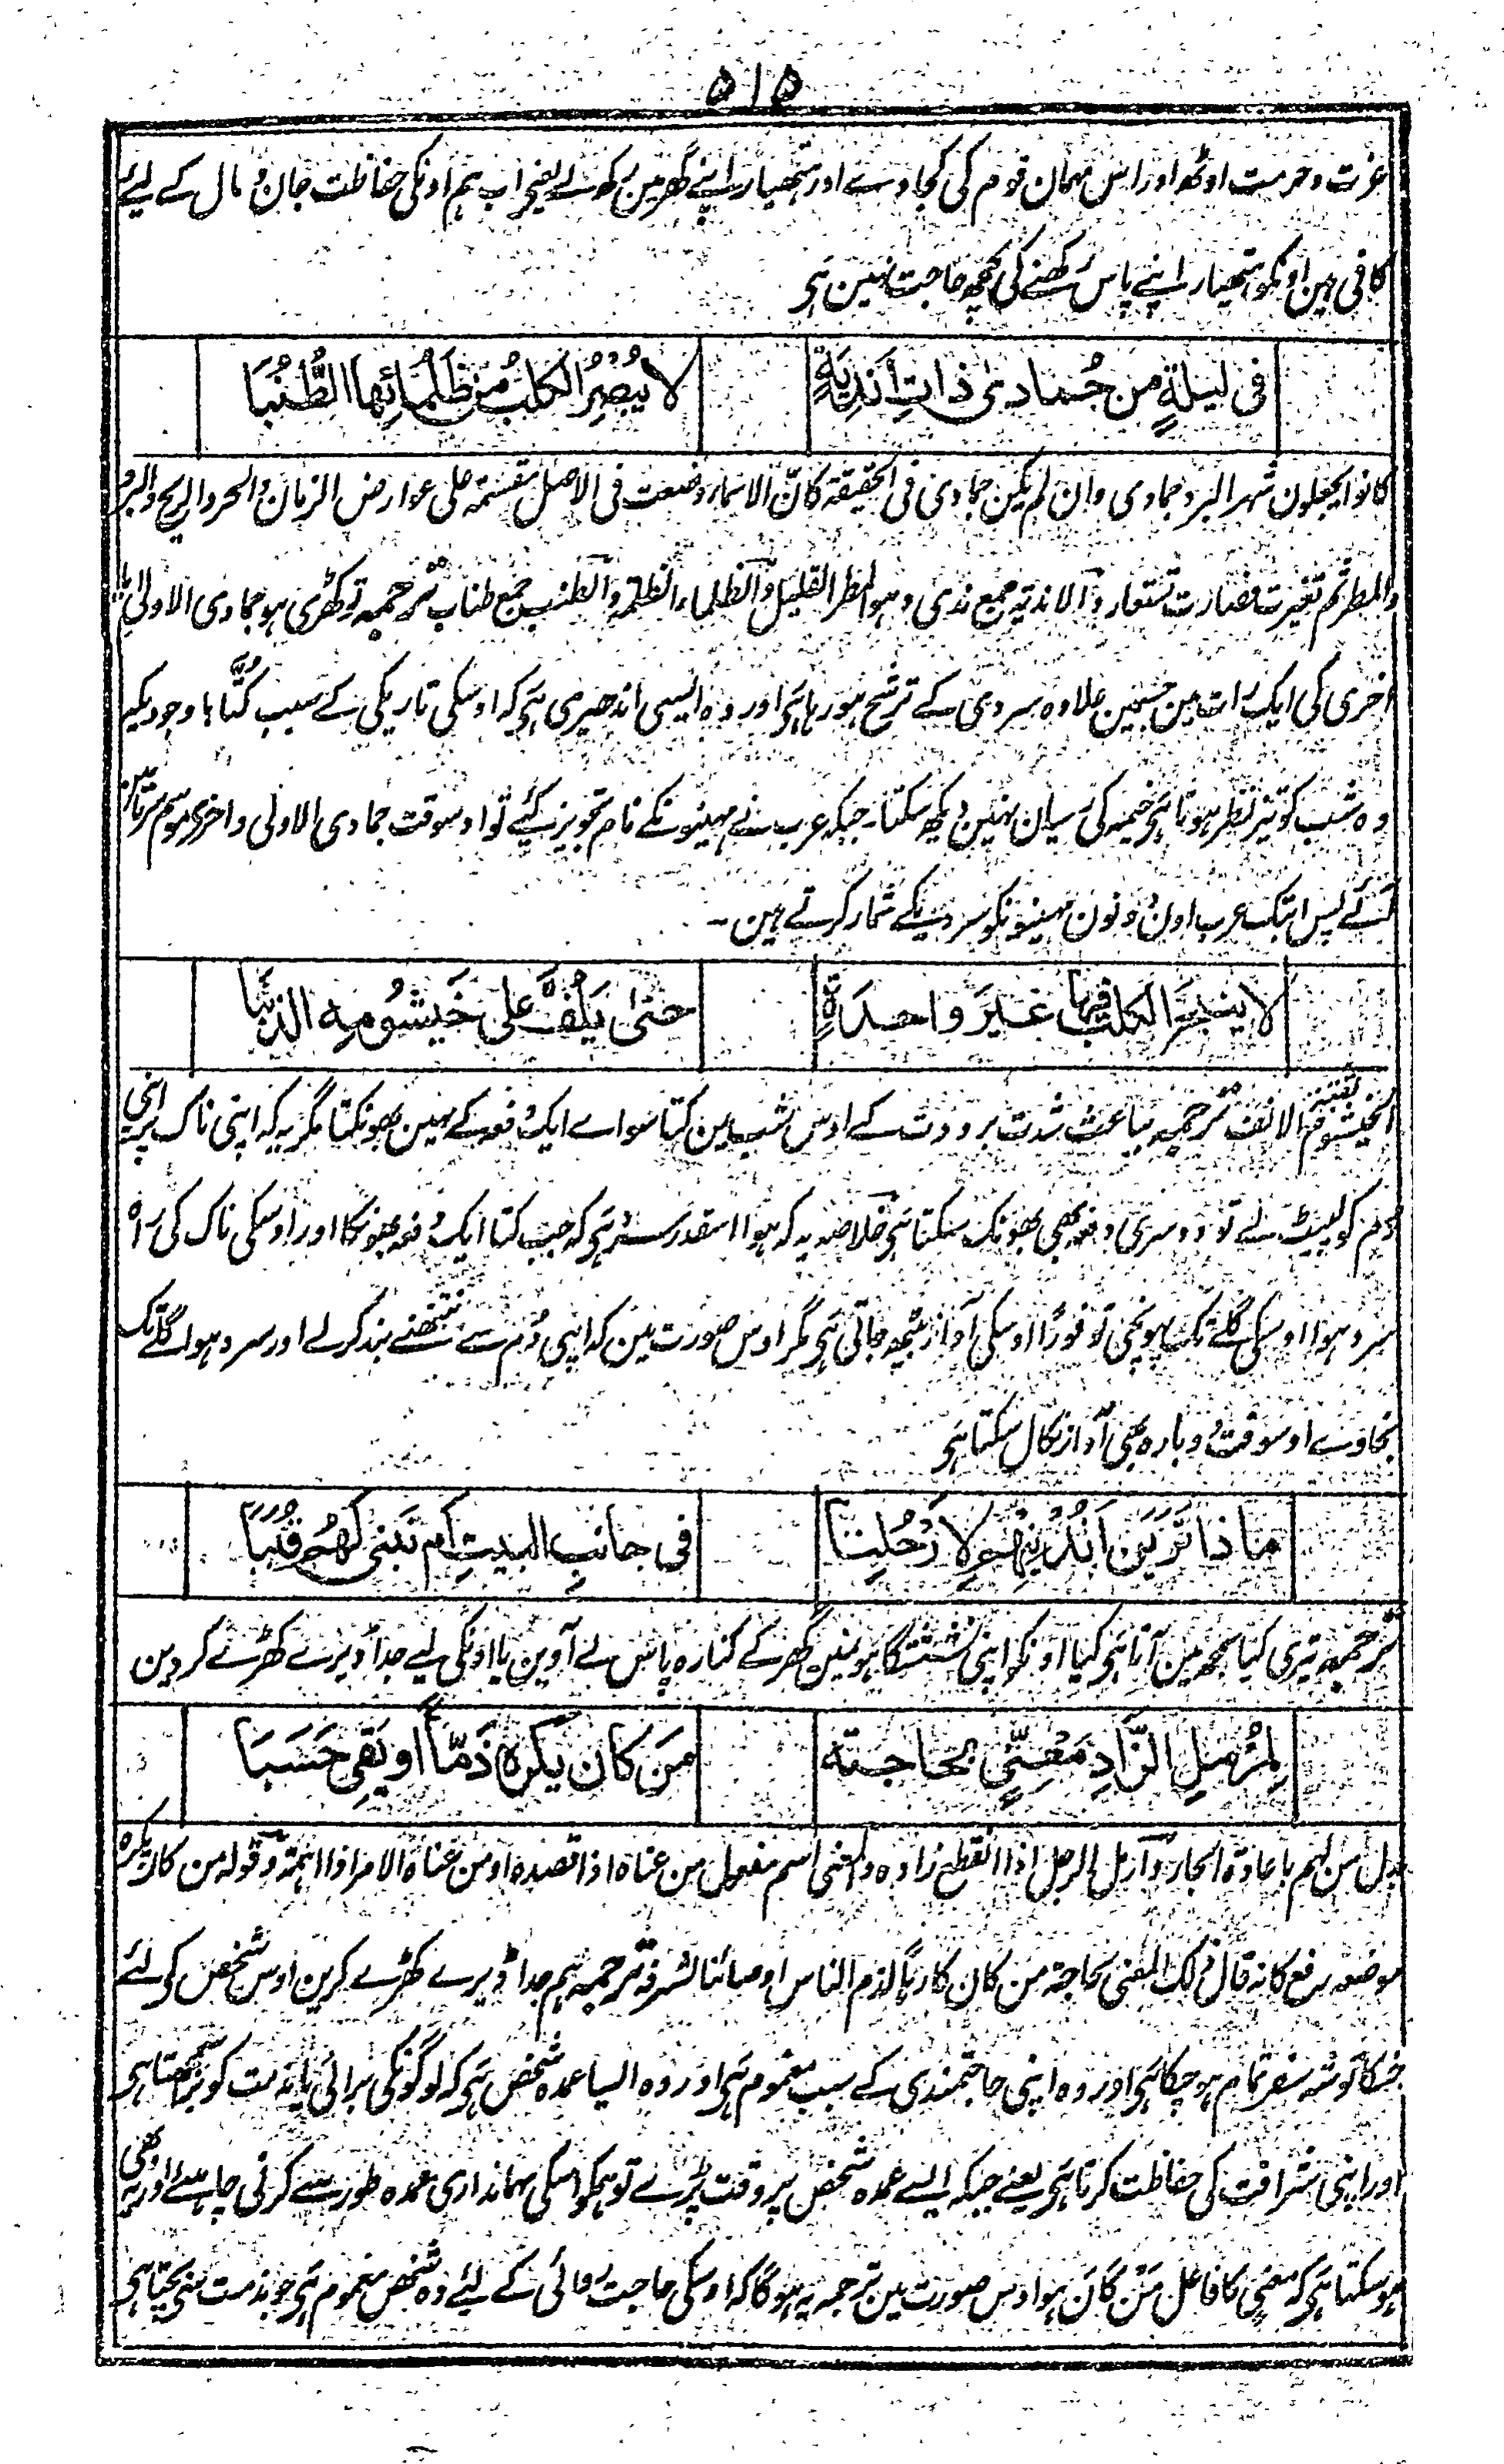 ۵۱۵
عزت و حرمت اوٹھ اور اس مہمان قوم کی کجاوے اور ہتھیار اپنے گھر مین رکھ لے یعنے اب ہم اونکی حفاظت جان و مال کے لیے
کافی ہین اونکو ہتھیار اپنے پاس رکھنے کی کچھ حاجت نہین ہی
فی لیلةٍ من جُمادی ذاتِ اَندِیَةٍ لا یُبصِرُ الکلبُ من ظَلْمائِها الطُّنُبَا
کانوا یجعلون شهر البرد جمادی وان لم یکن جمادی فی الحقیقة کانّ الاسماء وضعت فی الاصل مقسمة علی عوارض الزمان والحر والریح والبرد
والمطر ثم تغیرت فصارت تستعار والاندیة جمع ندی وهو المطر القلیل والظلماء الظلمة والطنب جمع طناب ترجمہ تو کھڑی ہو جمادی الاولی یا
اخری کی ایک رات مین جسمین علاوہ سردی کے ترشح ہو رہا ہی اور وہ ایسی اندھیری ہی کہ اوسکی تاریکی کے سبب کُتّا باوجودیکہ
وہ شب کو تیز نظر ہوتا ہی خیمہ کی رسیان نہین دیکھ سکتا۔ جبکہ عرب نے مہینونکے نام تجویز کیئے تو اوسوقت جمادی الاولی و اخری موسم سرما مین
تھے پس ابتک عرب اون دونون مہینونکو سردیکے شمار کرتے ہین۔
لا ینبَحُ الکلبُ فیها غیرَ واحدةٍ حتی یَلُفَّ علی خَیشُومِهِ الذَّنَبَا
الخیشوم الانف ترجمہ بباعث شدت برودت کے اوس شب مین کتا سواے ایک دفعہ کے نہین بھونکتا مگر یہ کہ اپنی ناک پر اپنی
دُم کو لپیٹ لے تو دوسری دفعہ بھی بھونک سکتا ہی خلاصہ یہ کہ ہوا اسقدر سرد ہی کہ جب کتا ایک دفعہ بھونکا اور اوسکی ناک کی راہ
سرد ہوا اوسکی گلے تک پہونچی تو فورًا اوسکی آواز بیٹھ جاتی ہی مگر اوس صورت مین کہ اپنی دُم سے نتھنے بند کرلے اور سرد ہوا گلے تک
نجاوے اوسوقت دوبارہ بھی آواز نکال سکتا ہی
ماذا تَرَیْنَ اَنُدْنِیْهِم لِاَرْحُلِنا فی جانِبِ البیتِ اَم نَبنِی لَهُم قُبَبَا
ترجمہ تیری کیا سمجھ مین آتا ہی کیا اونکو اپنی نشستگاہونمین گھر کے کنارہ پاس لے آوین یا اونکی لیے جدا ڈیرے کھڑے کردین
لِمُرْمِلِ الزَّادِ مَعْنِیٍّ بحاجته مَن کان یکرہ ذَمّاً او یَقِی حَسَبَا
بدل من لهم باعادة الجار وارمل الرجل اذا انقطع زاده والمعنی اسم مفعول من عناه اذا قصده او من عناه الامر اذا اهمه وقوله من کان یکره
موضعه رفع کانه قال ذلک المعنی بحاجته من کان کارها لذم الناس او صائنا لشرفه ترجمہ ہم جدا ڈیرے کھڑے کرین اوس شخص کی لئے
جسکا توشہ سفر تمام ہوچکا ہی اور وہ اپنی حاجتمندی کے سبب مغموم ہی اور وہ ایسا عمدہ شخص ہی کہ لوگونکی برائی یا مذمت کو برا سمجھتا ہی
اور اپنی شرافت کی حفاظت کرتا ہی یعنے جبکہ ایسے عمدہ شخص پر وقت پڑے تو ہمکو اسکی مہمانداری عمدہ طور سے کرنی چاہیئے اور یہ بھی
ہوسکتا ہی کہ معنی کا فاعل مَنْ کَانَ ہو اوس صورت مین ترجمہ یہ ہوگا کہ اوسکی حاجت روائی کے لیئے وہ شخص مغموم ہی جو مذمت سے بچتا ہی